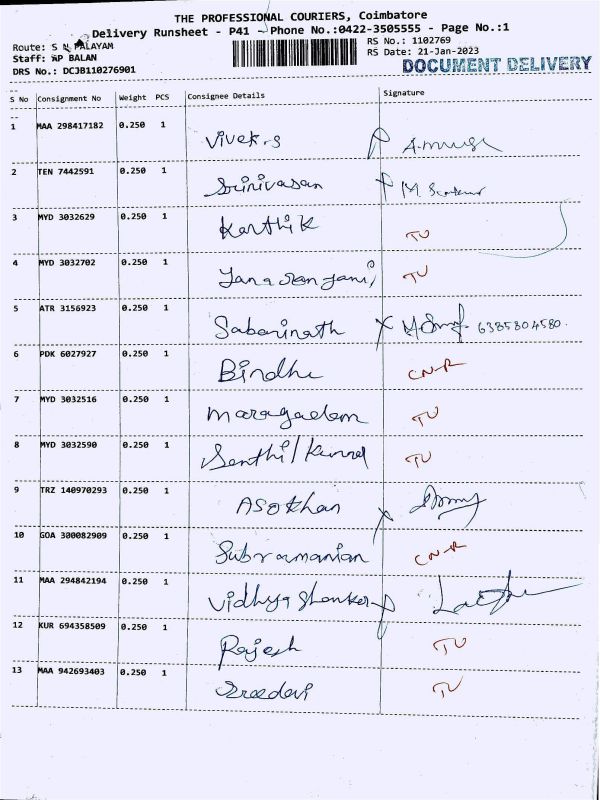 THE PROFESSIONAL COURIERS, Coimbatore
Delivery Runsheet - P41 - Phone No.:0422-3505555 - Page No.:1
Route: S N PALAYAM
RS No.: 1102769
Staff: AP BALAN
RS Date: 21-Jan-2023
DRS No.: DCJB110276901
DOCUMENT DELIVERY
S No Consignment No Weight PCS Consignee Details Signature
1 MAA 298417182 0.250 1 Vivek-s
2 TEN 7442591 0.250 1 Srinivasan
3 MYD 3032629 0.250 1 Karthik TU
4 MYD 3032702 0.250 1 TU
5 ATR 3156923 0.250 1 Sabarinath 6385804580.
6 PDK 6027927 0.250 1 Bindhu CN-R
7 MYD 3032516 0.250 1 Maragadam TU
8 MYD 3032590 0.250 1 TU
9 TRZ 140970293 0.250 1 Asokhan
10 GOA 300082909 0.250 1 Subramanian CN-R
11 MAA 294842194 0.250 1 Vidhya Shanker
12 KUR 694358509 0.250 1 Rajesh TU
13 MAA 942693403 0.250 1 Sreedevi TU